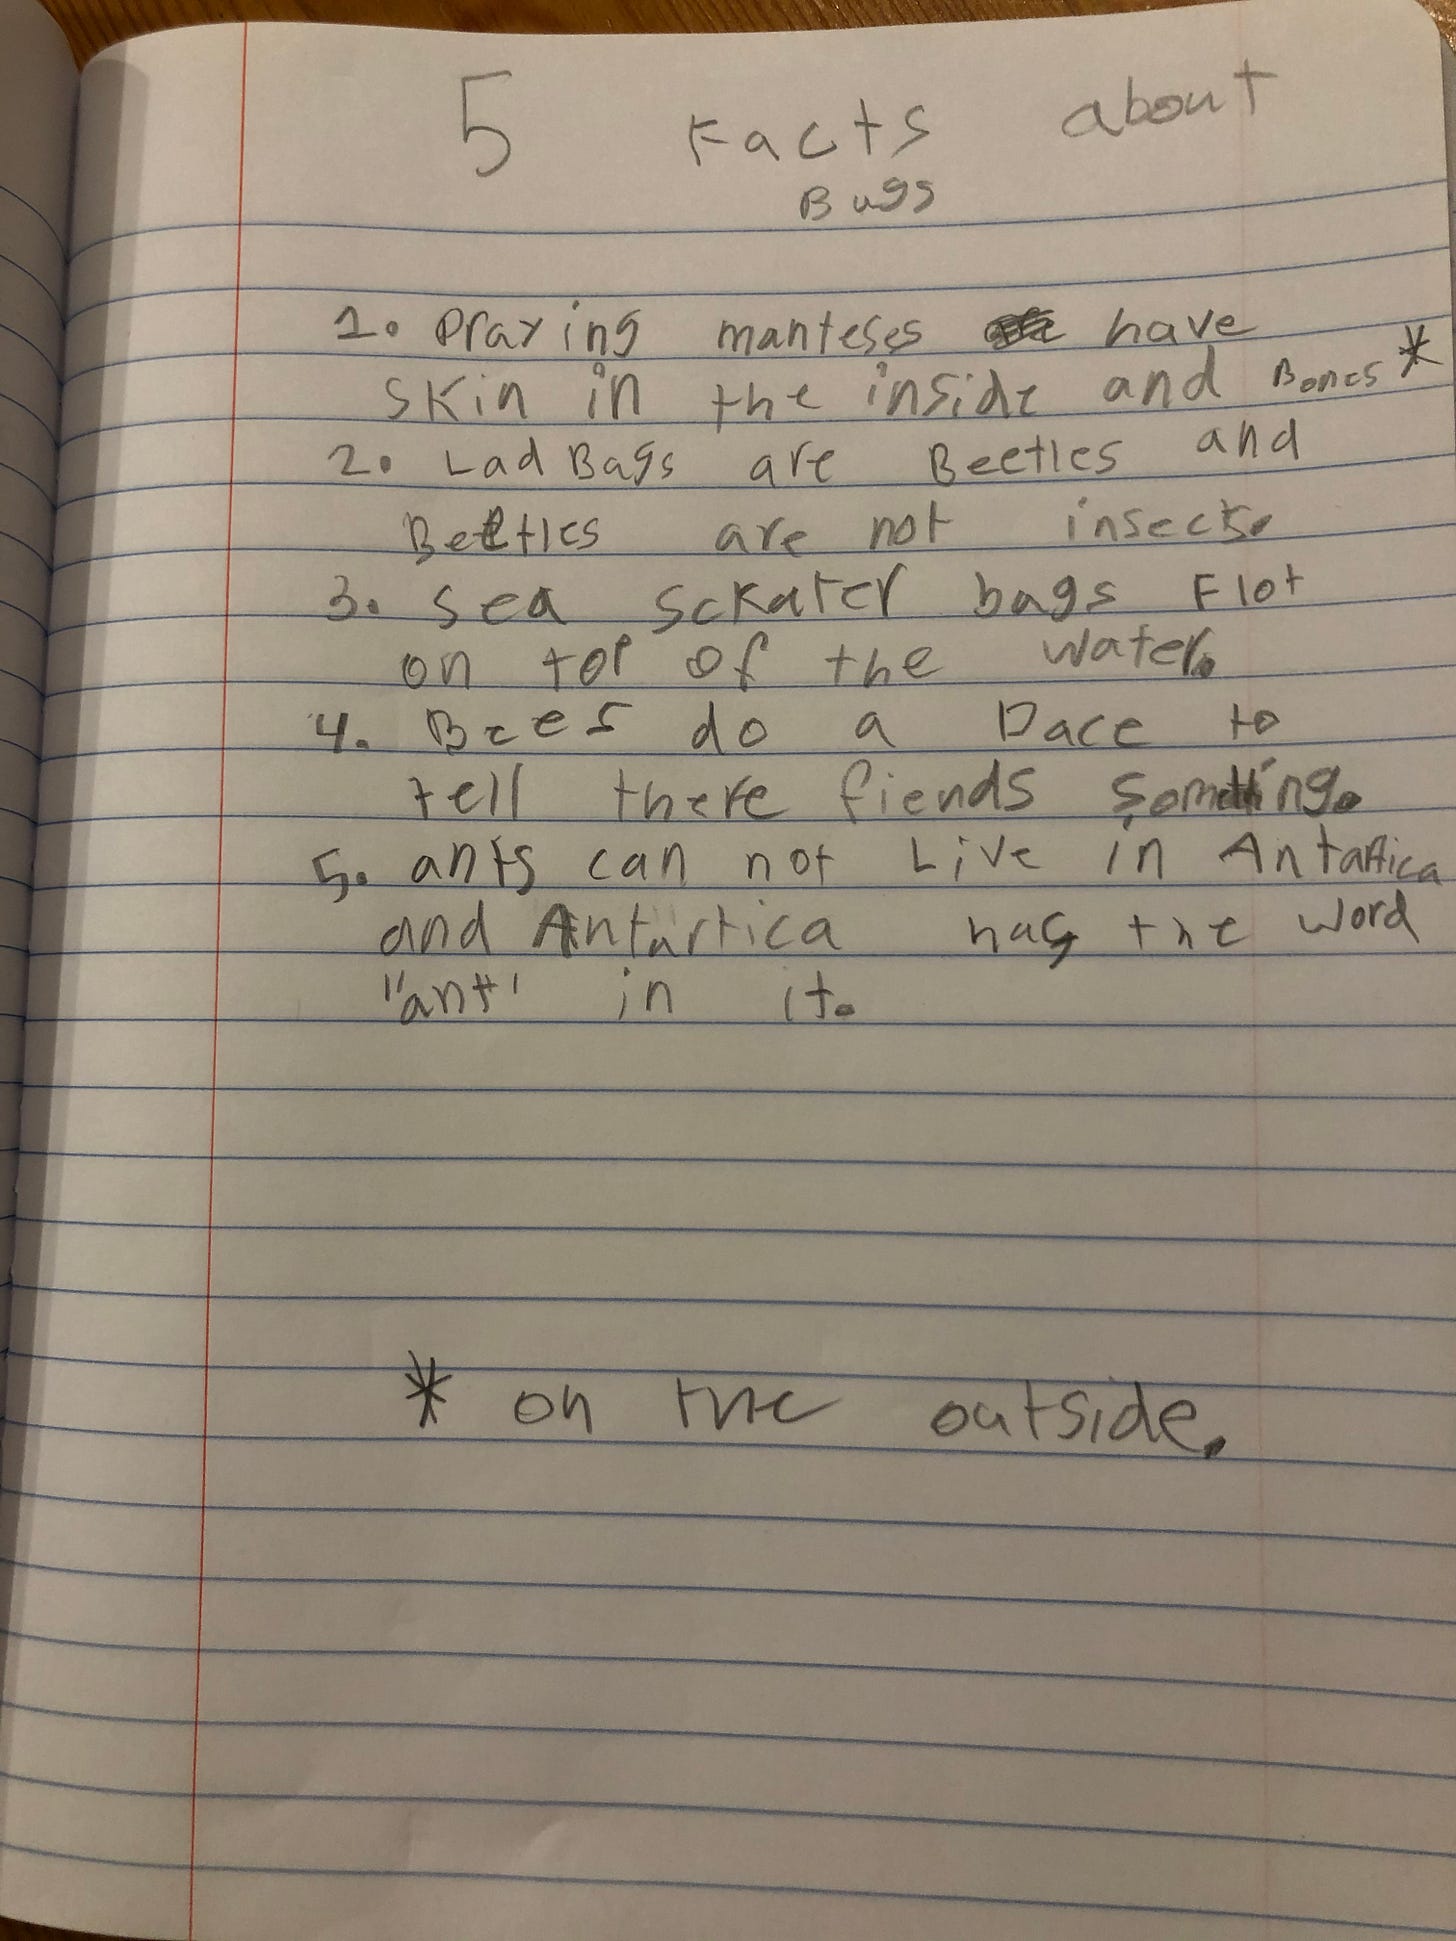 5 Facts about
Bugs
1. Praying manteses have
skin in the inside and Bones *
2. Lad Bugs are Beetles and
Beetles are not insects.
3. sea sckater bugs Flot
on top of the water.
4. Bees do a Dace to
tell there fiends something.
5. ants can not Live in Antartica
and Antartica has the word
"ant" in it.
* on the outside.